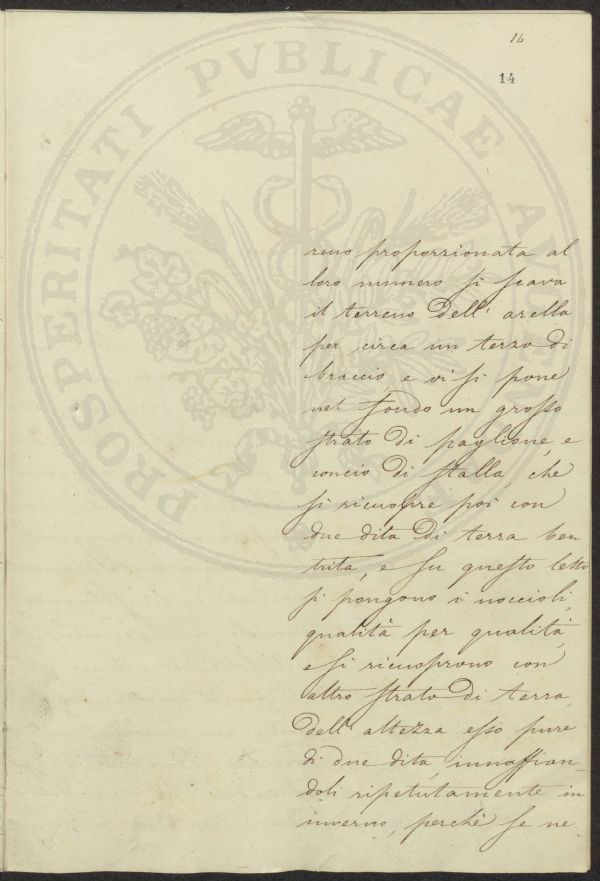 14
14
PROSPERITATI PVBLICAE
reno proporzionata al
loro numero si scava
il terreno dell' arella
per circa un terzo di
braccio, e vi si pone
nel fondo un grosso
strato di paglione, e
concio di stalla, che
si ricuopre poi con
due dita di terra ben
trita, e su questo letto
si pongono i noccioli,
qualità per qualità,
e si ricuoprono con
altro strato di terra,
dell' altezza esso pure
di due dita, innaffian-
doli ripetutamente in
inverno, perchè se ne